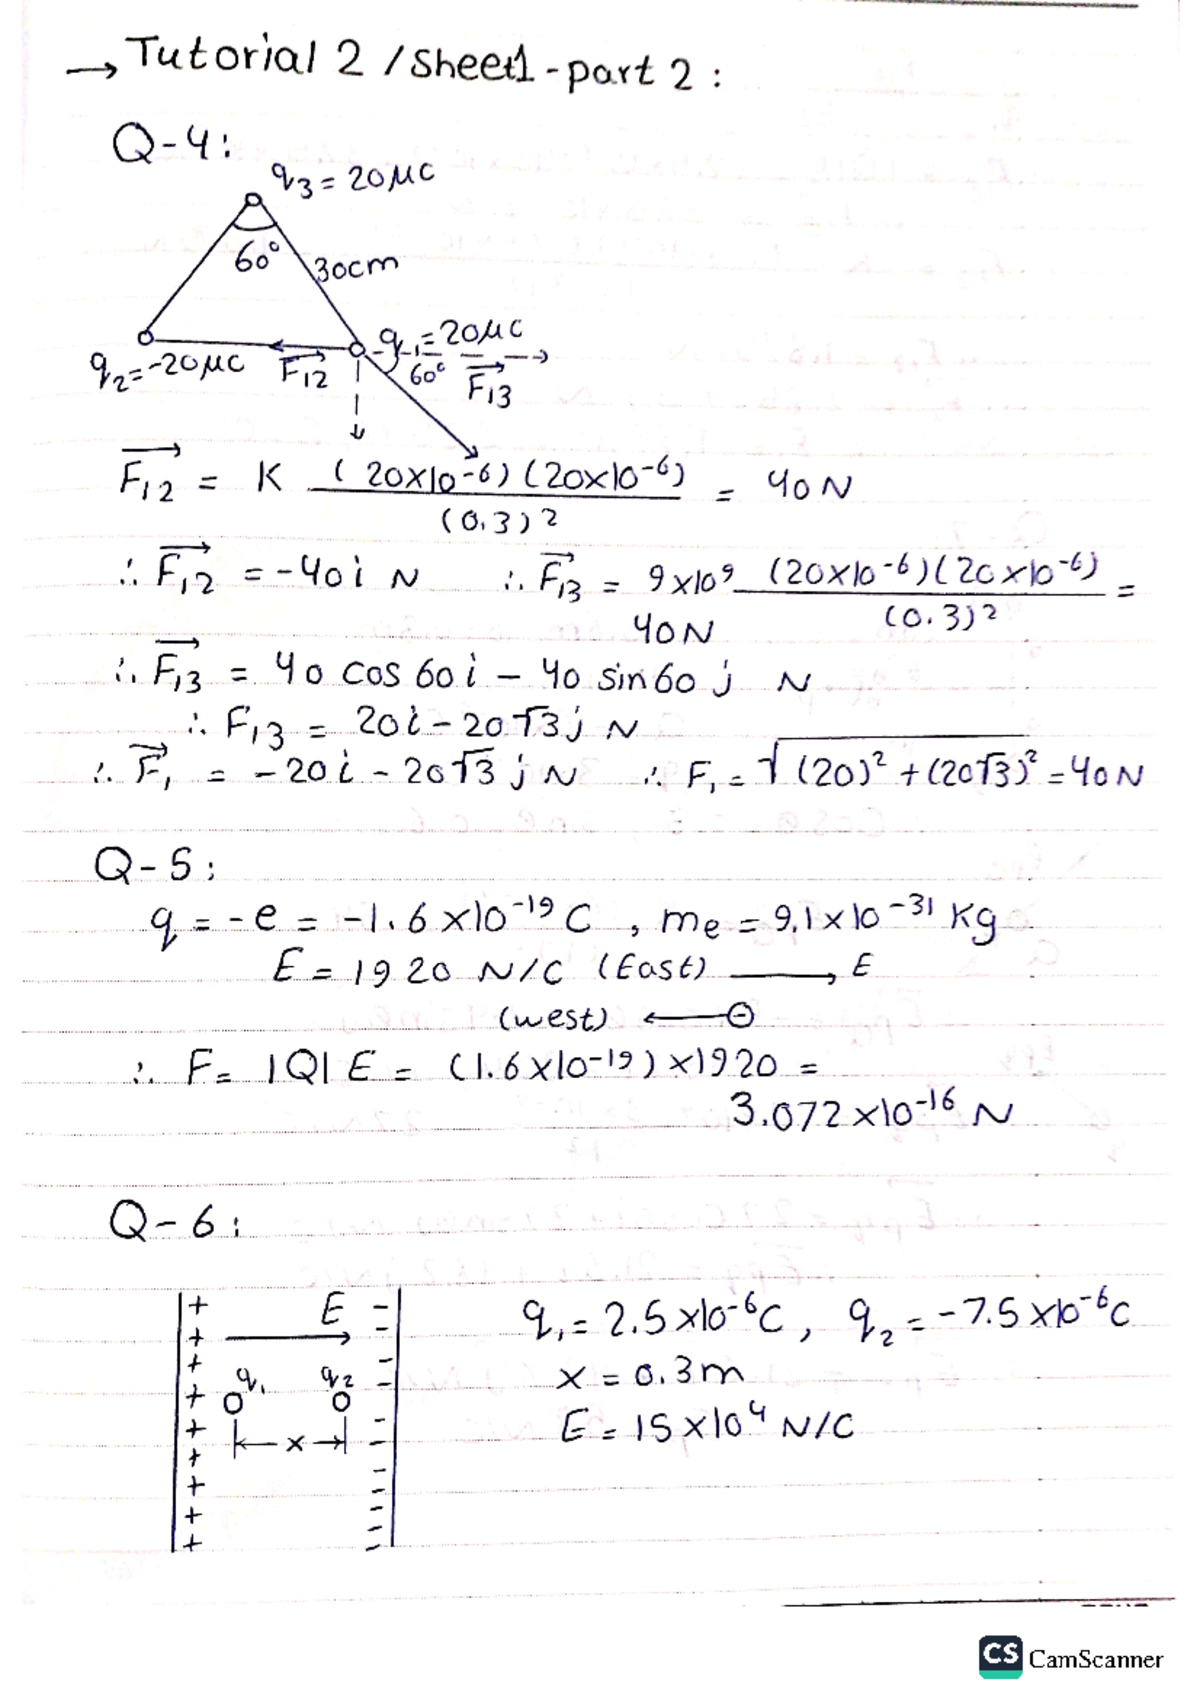 → Tutorial 2 / Sheet1 - part 2 :
Q-4:
q3 = 20μC
60°
30cm
q1 = 20μC
q2 = -20μC
F12
60°
F13
F12 = K (20x10-6)(20x10-6) / (0.3)2 = 40N
∴ F12 = -40i N ∴ F13 = 9x109 (20x10-6)(20x10-6) / (0.3)2 =
40N
∴ F13 = 40 cos 60 i - 40 sin 60 j N
∴ F13 = 20i - 20√3j N
∴ F1 = -20i - 20√3 j N ∴ F1 = √(20)2 + (20√3)2 = 40N
Q-5:
q = -e = -1.6x10-19 C , me = 9.1x10-31 Kg
E = 1920 N/C (East) → E
(west) ← ⊖
∴ F = |Q| E = (1.6x10-19) x1920 =
3.072x10-16 N
Q-6:
E
q1 q2
x
q1 = 2.5x10-6C , q2 = -7.5x10-6C
x = 0.3m
E = 15x104 N/C
CS CamScanner